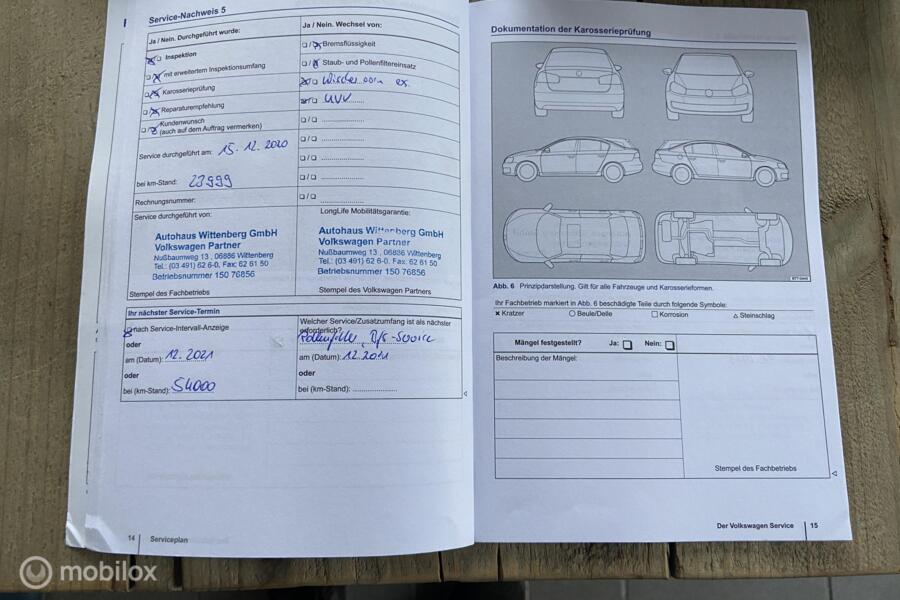 Service-Nachweis 5
Ja / Nein. Durchgeführt wurde:
Inspektion
mit erweitertem Inspektionsumfang
Karosserieprüfung
Reparaturempfehlung
Kundenwunsch
(auch auf dem Auftrag vermerken)
Service durchgeführt am: 15.12.2020
bei km-Stand: 23999
Rechnungsnummer:
Service durchgeführt von:
Autohaus Wittenberg GmbH
Volkswagen Partner
Nußbaumweg 13 , 06886 Wittenberg
Tel.: (03 491) 62 6-0, Fax: 62 61 50
Betriebsnummer 150 76856
Stempel des Fachbetriebs
Ja / Nein. Wechsel von:
Bremsflüssigkeit
Staub- und Pollenfiltereinsatz
UVV
LongLife Mobilitätsgarantie:
Autohaus Wittenberg GmbH
Volkswagen Partner
Nußbaumweg 13 , 06886 Wittenberg
Tel.: (03 491) 62 6-0, Fax: 62 61 50
Betriebsnummer 150 76856
Stempel des Volkswagen Partners
Ihr nächster Service-Termin
nach Service-Intervall-Anzeige
oder
am (Datum): 12.2021
oder
bei (km-Stand): 54000
Welcher Service/Zusatzumfang ist als nächster
erforderlich?
Pollenfilter, Öl-Service
am (Datum): 12.2021
oder
bei (km-Stand):
14 Serviceplan
Dokumentation der Karosserieprüfung
Abb. 6 Prinzipdarstellung. Gilt für alle Fahrzeuge und Karosserieformen.
Ihr Fachbetrieb markiert in Abb. 6 beschädigte Teile durch folgende Symbole:
Kratzer Beule/Delle Korrosion Steinschlag
Mängel festgestellt? Ja: Nein:
Beschreibung der Mängel:
Stempel des Fachbetriebs
Der Volkswagen Service 15
mobilox